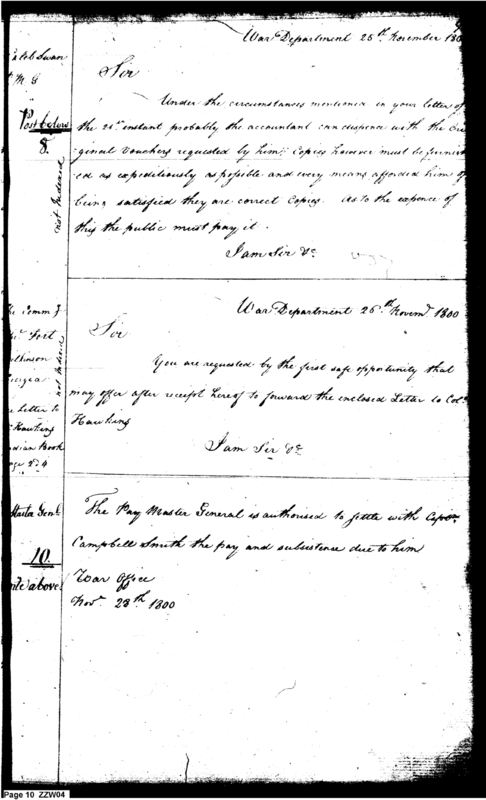 War Department 25th November 180
Caleb Swan
P. M. G
Sir
Under the circumstances mentioned in your letter of
Post below
the 21st instant probably the accountant can dispence with the Ori
8.
ginal Vouchers requested by him; Copies however must be furnish
not Indexed
ed as expeditiously as possible and every means afforded him of
being satisfied they are correct Copies. As to the expence of
this the public must pay it.
I am Sir &c
War Department 26th Novemr 1800
he Comm g
Fort
Sir
ilkinson
eorgia
not Indexed
You are requested by the first safe opportunity that
e Letter to
may offer after receipt hereof to forward the inclosed Letter to Colo
Hawkins
Hawkins
ndian Book
age 24
I am Sir &c
Master Genl
The Pay Master General is authorised to settle with Captn
Campbell Smith the pay and subsistence due to him
10.
War Office
note above
Novr 28th 1800
Page 10 ZZW04